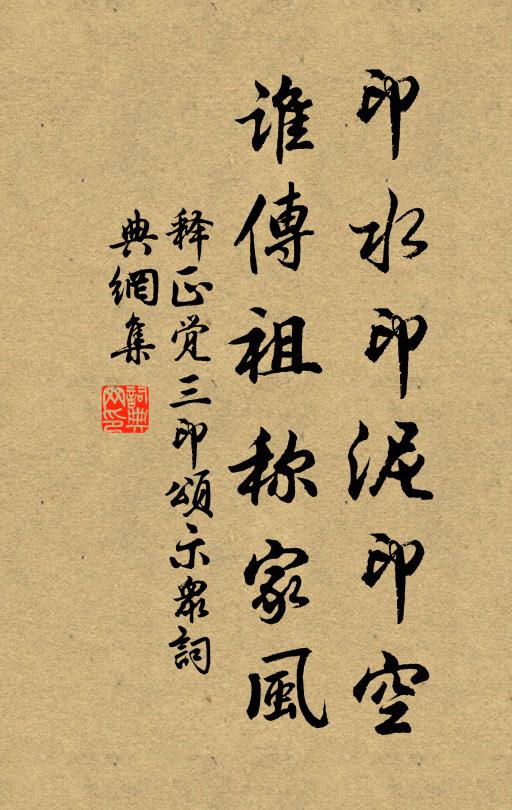 印水印泥印空
誰傳祖称家風
释正觉三印頌示衆詞
典網集
詞典網印